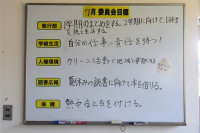 7月 委員会目標
執行部 1学期のまとめをする。2学期に向けて、目標を持って生活する
学級生活 自分の仕事に責任を持つ!
人権環境 クリーン活動で地域の
読書広報 夏休みの読書に向けて本を借りる。
保健 熱中症に気を付ける。